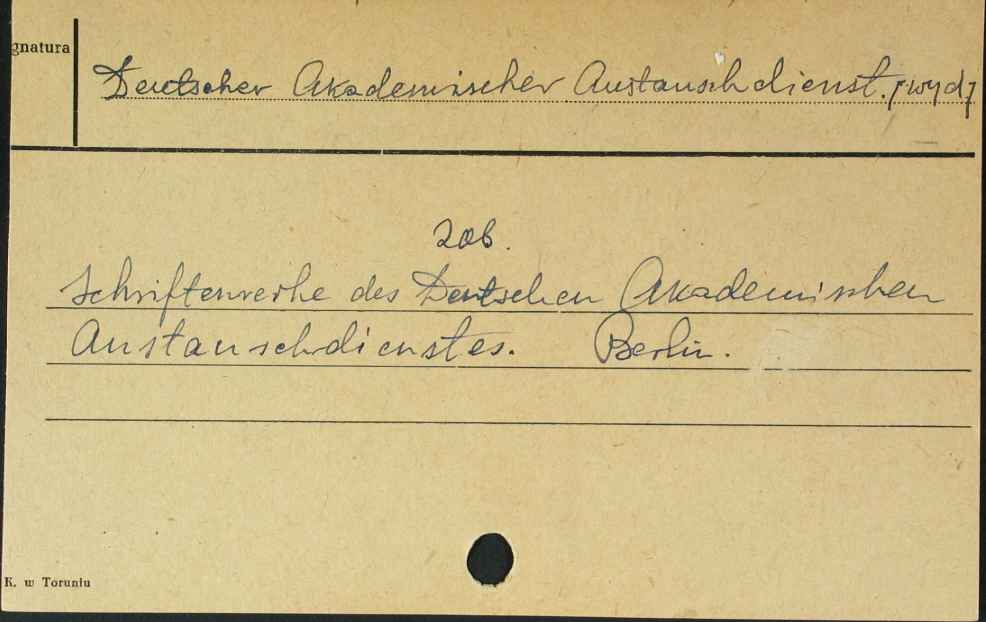 gnatura
Deutscher Akademischer Austauschdienst. [wyd]
Zob.
Schriftenreihe des Deutschen Akademischen
Austauschdienstes. Berlin.
K. w Toruniu